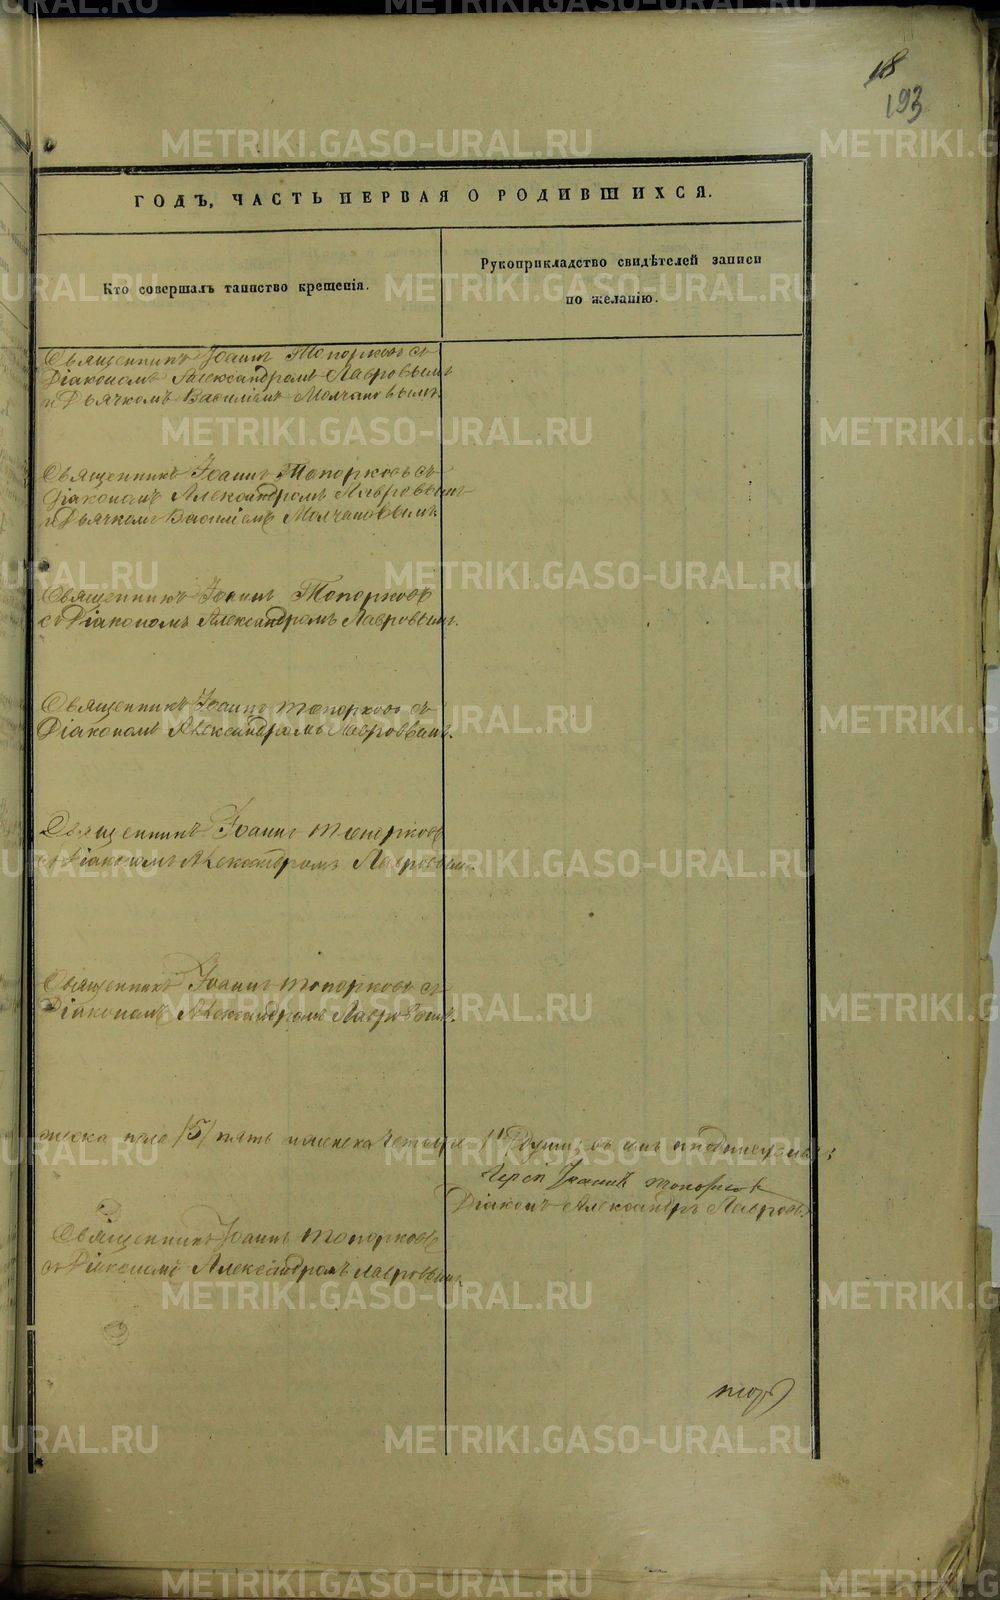 18
193
ГОДЪ, ЧАСТЬ ПЕРВАЯ О РОДИВШИХСЯ.
Кто совершалъ таинство крещенія.
Рукоприкладство свидѣтелей записи
по желанію.
Священникъ Іоаннъ Топорковъ съ
Діакономъ Александромъ Лавровымъ
и Дьячкомъ Василіемъ Молчановымъ.
Священникъ Іоаннъ Топорковъ съ
Діакономъ Александромъ Лавровымъ
и Дьячкомъ Василіемъ Молчановымъ.
Священникъ Іоаннъ Топорковъ
съ Діакономъ Александромъ Лавровымъ.
Священникъ Іоаннъ Топорковъ съ
Діакономъ Александромъ Лавровымъ.
Священникъ Іоаннъ Топорковъ
съ Діакономъ Александромъ Лавровымъ.
Священникъ Іоаннъ Топорковъ съ
Діакономъ Александромъ Лавровымъ.
мужска пола /5/ пять и женска четыре
Іерей Іоаннъ Топорковъ
Діаконъ Александръ Лавровъ.
Священникъ Іоаннъ Топорковъ
съ Діакономъ Александромъ Лавровымъ.
METRIKI.GASO-URAL.RU